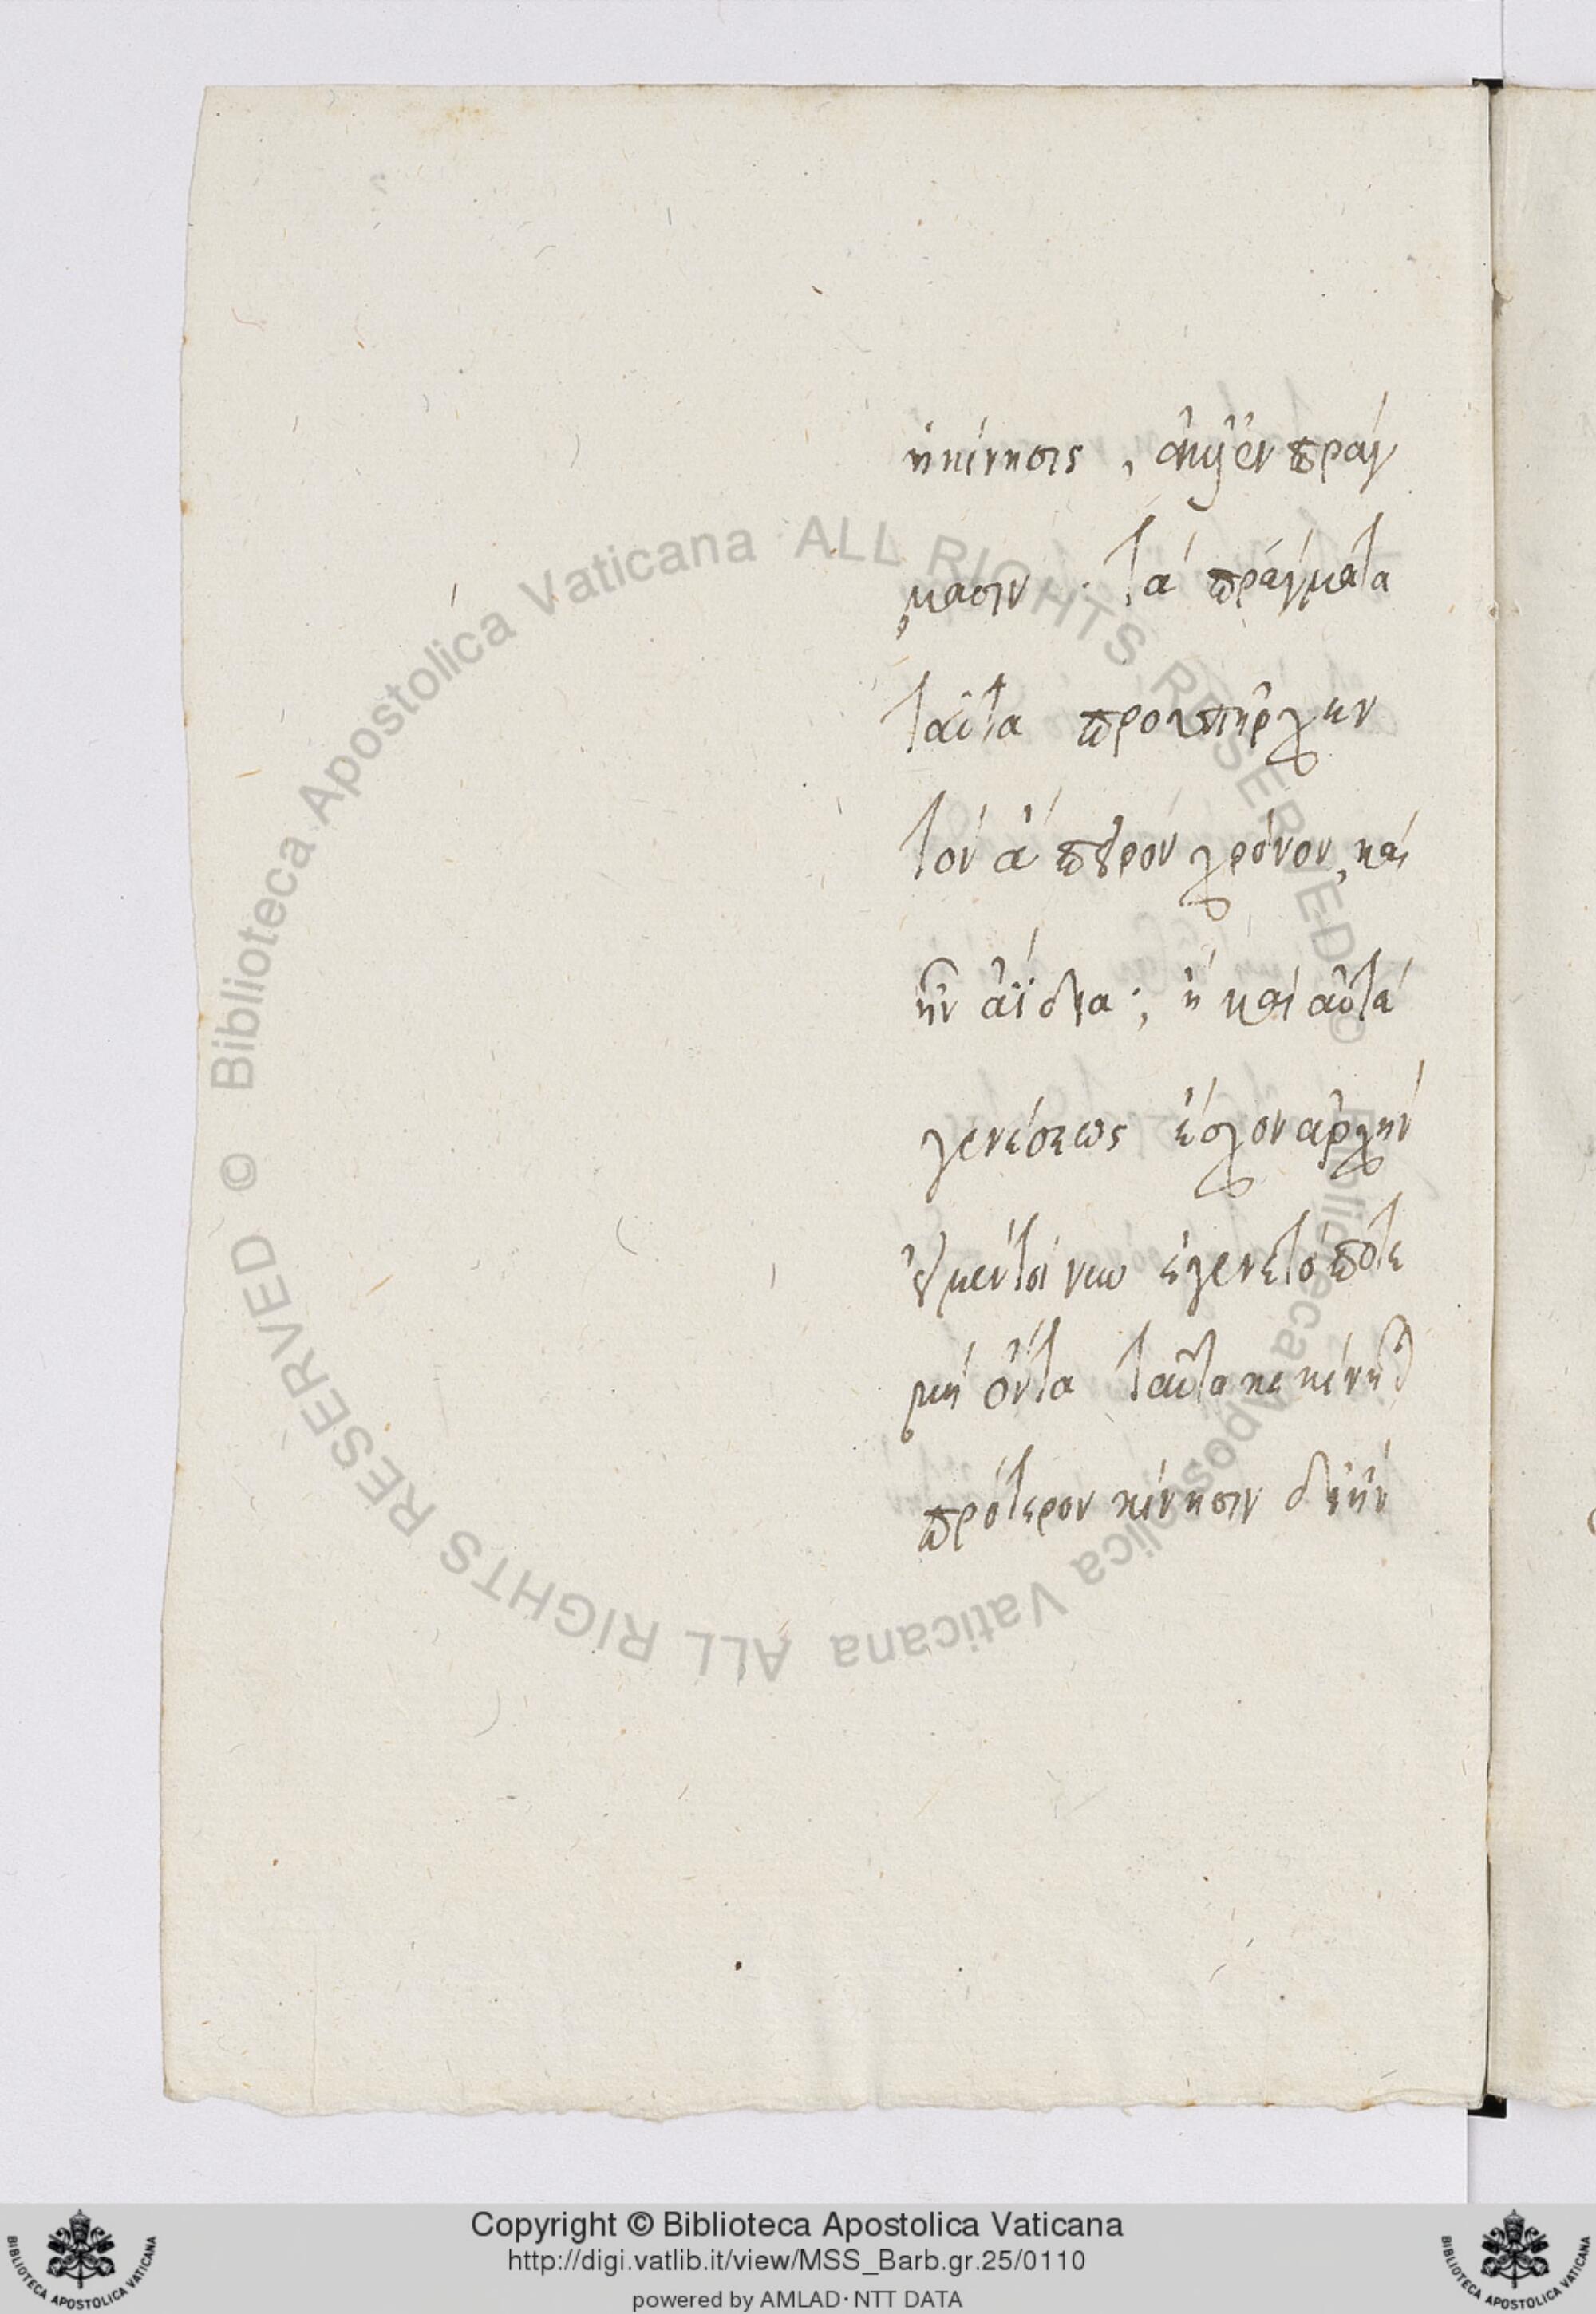 ἡ κίνησις, ἀλλ' ἐν πράγ
μασιν· τὰ πράγματα
ταῦτα προϋπῆρχεν
τὸν ἄπειρον χρόνον, καὶ
ἦν ἀΐδια; ἢ καὶ αὐτὰ
γενέσεως ἔσχον ἀρχήν
εἰ μέντοι ἐγένετό ποτε
μὴ ὄντα ταῦτα
πρότερον κίνησιν
Copyright © Biblioteca Apostolica Vaticana
http://digi.vatlib.it/view/MSS_Barb.gr.25/0110
powered by AMLAD·NTT DATA
BIBLIOTECA APOSTOLICA VATICANA
BIBLIOTECA APOSTOLICA VATICANA
© Biblioteca Apostolica Vaticana ALL RIGHTS RESERVED
© Biblioteca Apostolica Vaticana ALL RIGHTS RESERVED